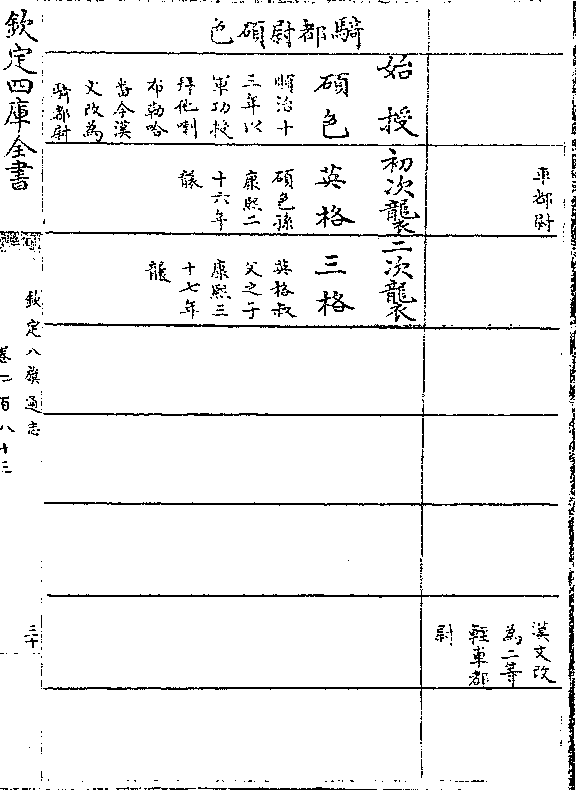 車都尉
漢文改
為二等
輕車都
尉
騎都尉碩色
始授
碩色
順治十
三年以
軍功授
拜他喇
布勒哈
番今漢
文改為
騎都尉
初次襲
英格
碩色孫
康熙二
十六年
襲
二次襲
三格
英格叔
父之子
康熙三
十七年
襲
欽定四庫全書
欽定八旗通志
卷二百八十三
三十